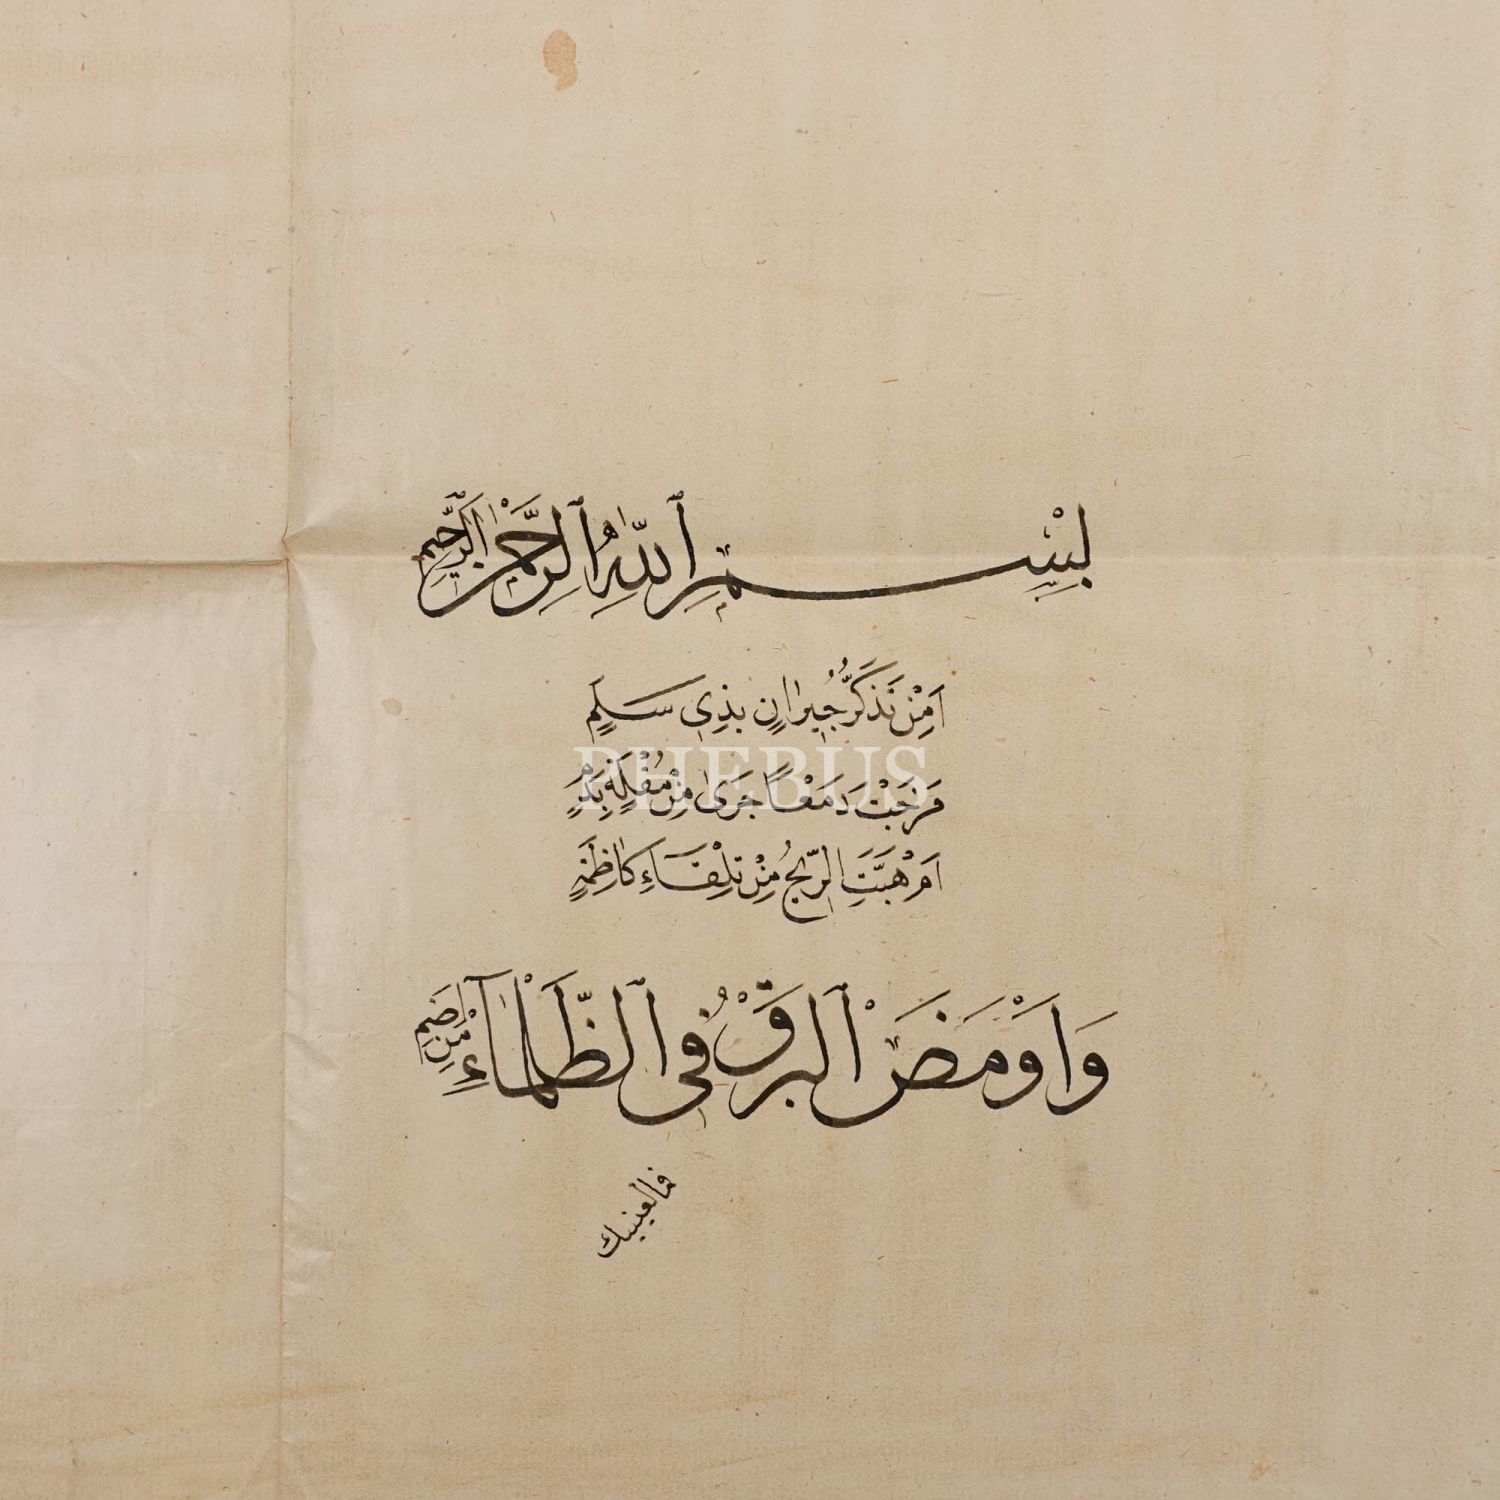 بِسْمِ ٱللّٰهِ ٱلرَّحْمٰنِ ٱلرَّحِيمِ
اَمِنْ تَذَكُّرِ جِيرَانٍ بِذِي سَلَمٍ
PHEBUS
مَزَجْتَ دَمْعًا جَرٰى مِنْ مُقْلَةٍ بِدَمٍ
اَمْ هَبَّتِ الرِّيحُ مِنْ تِلْقَاءِ كَاظِمَةٍ
وَاَوْمَضَ ٱلْبَرْقُ فِى ٱلظَّلْمَاءِ مِنْ اِضَمِ
فما لعينيك